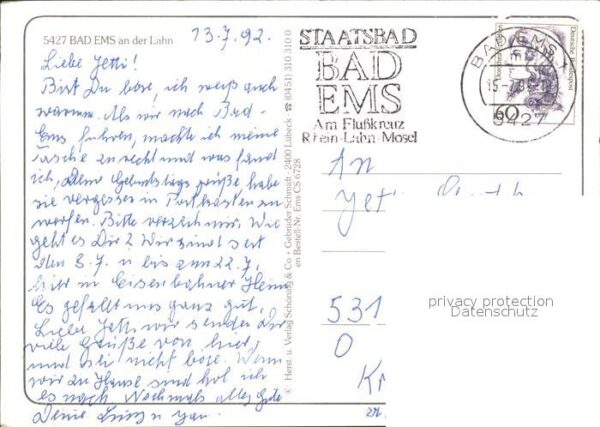 5427 BAD EMS an der Lahn
13.7.92.
Liebe Jetti!
Bist Du böse, ich weiß auch
warum. Als wir nach Bad-
Ems fuhren, machte ich meine
Tasche zurecht und was fand
ich, Deine Geburtstagsgrüße habe
sie vergessen in Postkasten zu
werfen. Bitte verzeih mir. Wie
geht es Dir? Wir sind seit
den 8.7. u bis zum 22.7.
hier in Eisenbahner Heim
Es gefällt uns ganz gut,
Liebe Jetti wir senden Dir
viele Grüße von hier,
und sei nicht böse. Wenn
wir zu Hause sind hol ich
es nach. Nochmals alles Gute
Deine
© Herst. u. Verlag Schöning & Co + Gebrüder Schmidt · 2400 Lübeck · ☎ (0451) 310 310 0
en Bestell-Nr. Ems CS 6728
STAATSBAD
BAD
EMS
Am Flußkreuz
Rhein-Lahn-Mosel
BAD EMS
5427
60
Deutsche Bundespost
An
531
0
privacy protection
Datenschutz